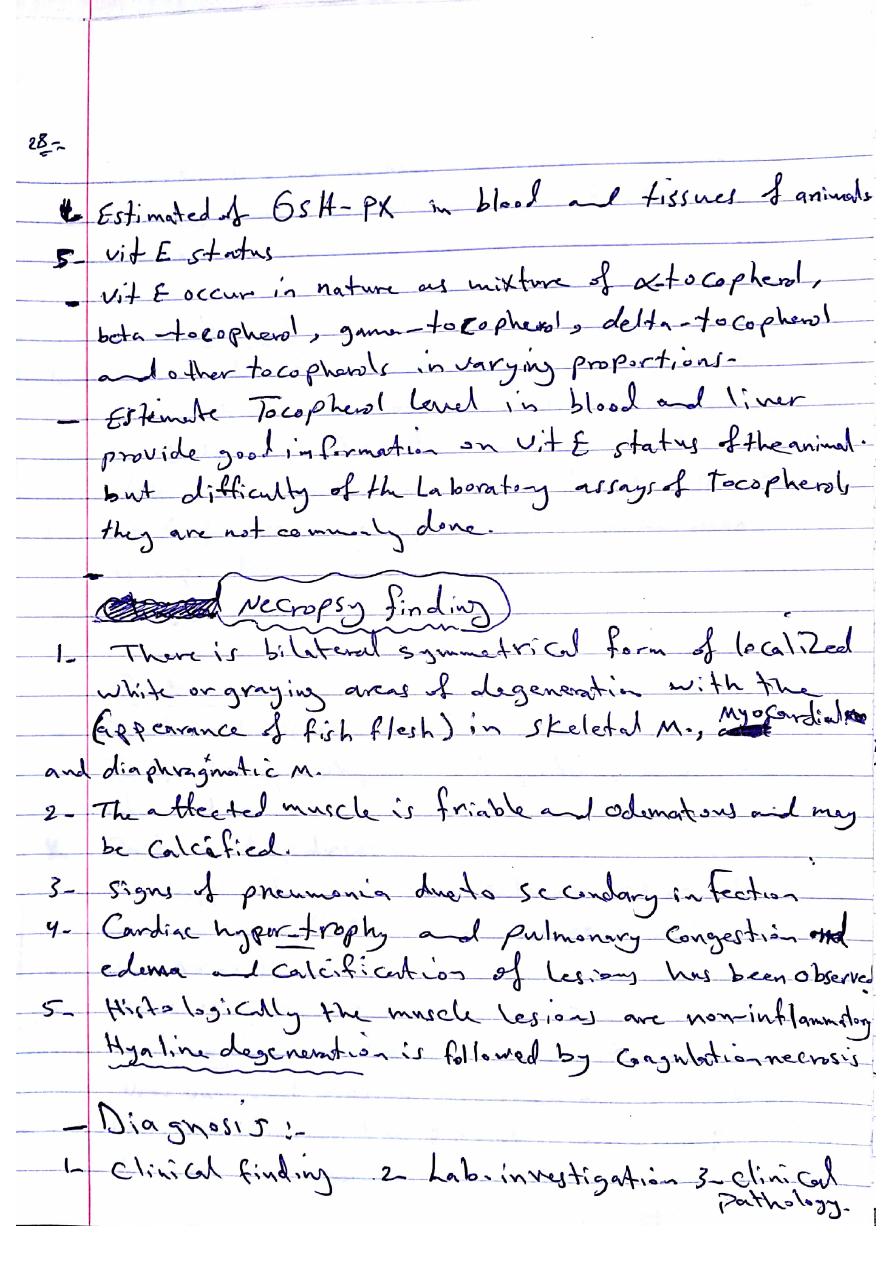 28-
Estimated of GSH-PX in blood and tissues of animals
5- vit E status
- vit E occur in nature as mixture of α-tocopherol,
beta-tocopherol, gama-tocopherol, delta-tocopherol
and other tocopherols in varying proportions-
- Estemate Tocopherol level in blood and liver
provide good information on vit E status of the animal.
but difficulty of the Laboratory assays of Tocopherols
they are not commonly done.
- Necropsy finding
1- There is bilateral symmetrical form of localized
white or graying areas of degeneration with the
(appearance of fish flesh) in skeletal M., Myocardial
and diaphragmatic M.
2- The affected muscle is friable and odematous and may
be calcified.
3- signs of pneumonia due to secondary infection
4- Cardiac hyper-trophy and pulmonary congestion and
edema and calcification of lesions has been observed
5- Histologically the muscle lesions are non-inflammatory
Hyaline degeneration is followed by coagulation necrosis
- Diagnosis :-
1- clinical finding 2- Lab. investigation 3- clinical
pathology.